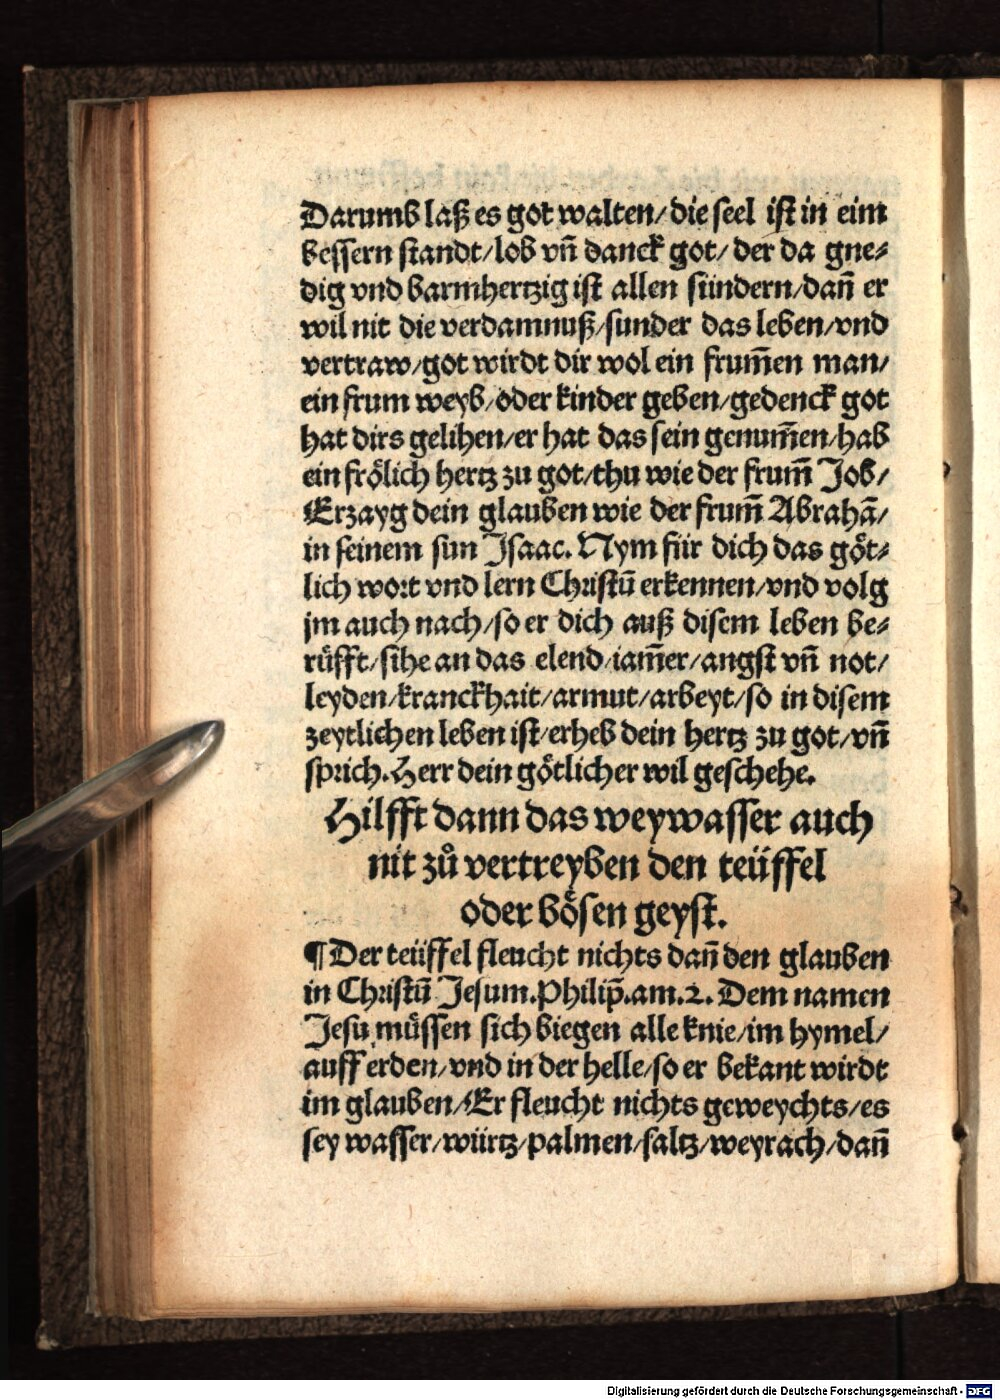 Darumb laß es got walten/ die seel ist in eim
bessern standt/ lob vñ danck got/ der da gne⸗
dig vnd barmhertzig ist allen sündern/ dañ er
wil nit die verdamnuß/ sunder das leben/ vnd
vertraw/ got wirdt dir wol ein frum̃en man/
ein frum weyb/ oder kinder geben/ gedenck got
hat dirs gelihen/ er hat das sein genum̃en/ hab
ein frölich hertz zu got/ thu wie der frum̃ Job/
Erzayg dein glauben wie der frum̃ Abrahã/
in seinem sun Jsaac. Nym für dich das göt⸗
lich wort vnd lern Christũ erkennen/ vnd volg
jm auch nach/ so er dich auß disem leben be⸗
rüfft/ sihe an das elend/ iam̃er/ angst vñ not/
leyden/ kranckhait/ armut/ arbeyt/ so in disem
zeytlichen leben ist/ erheb dein hertz zu got/ vñ
sprich. Herr dein götlicher wil geschehe.
Hilfft dann das weywasser auch
nit zů vertreyben den teüffel
oder bösen geyst.
¶ Der teüffel fleucht nichts dañ den glauben
in Christũ Jesum. Philip̃. am. 2. Dem namen
Jesu müssen sich biegen alle knie/ im hymel/
auff erden/ vnd in der helle/ so er bekant wirdt
im glauben/ Er fleucht nichts geweychts/ es
sey wasser/ würtz/ palmen/ saltz/ weyrach/ dañ
Digitalisierung gefördert durch die Deutsche Forschungsgemeinschaft - DFG